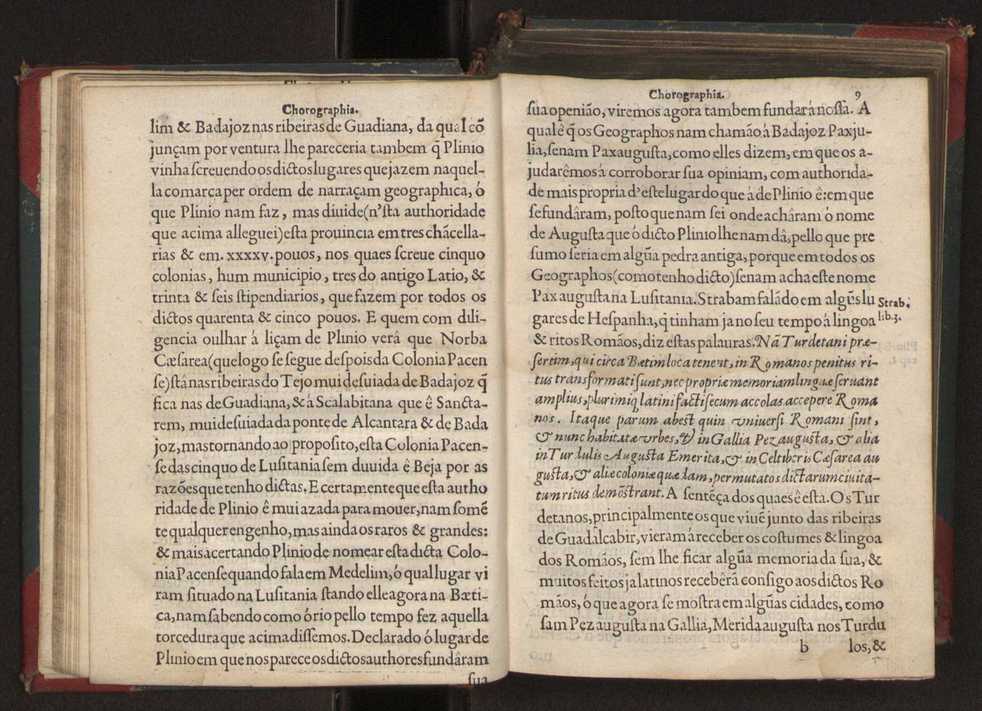 Chorographia.
lim & Badajoz nas ribeiras de Guadiana, da qual cõ
junçam por ventura lhe pareceria tambem q̃ Plinio
vinha screuendo os dictos lugares que jazem naquel-
la comarca per ordem de narraçam geographica, ó
que Plinio nam faz, mas diuide (n'sta authoridade
que acima alleguei) esta prouincia em tres chãcella-
rias & em. xxxxv. pouos, nos quaes screue cinquo
colonias, hum municipio, tres do antigo Latio, &
trinta & seis stipendiarios, que fazem por todos os
dictos quarenta & cinco pouos. E quem com dili-
gencia oulhar á liçam de Plinio verá que Norba
Cæsarea (que logo se segue despois da Colonia Pacen
se) stá nas ribeiras do Tejo mui desuiada de Badajoz q̃
fica nas de Guadiana, & á Scalabitana que ê Sancta-
rem, mui desuiada da ponte de Alcantara & de Bada
joz, mas tornando ao proposito, esta Colonia Pacen-
se das cinquo de Lusitania sem duuida ê Beja por as
razões que tenho dictas. E certamente que esta autho
ridade de Plinio ê mui azada para mouer, nam somẽ
te qualquer engenho, mas ainda os raros & grandes:
& mais acertando Plinio de nomear esta dicta Colo-
nia Pacense quando fala em Medelim, ó qual lugar vi
ram situado na Lusitania stando elle agora na Bæti-
ca, nam sabendo como ó rio pello tempo fez aquella
torcedura que acima dissemos. Declarado ó lugar de
Plinio em que nos parece os dictos authores fundâram
sua
Chorographia. 9
sua openião, viremos agora tambem fundar á nossa. A
qual ê q̃ os Geographos nam chamão à Badajoz Paxju-
lia, senam Paxaugusta, como elles dizem, em que os a-
judarêmos à corroborar sua opiniam, com authorida-
de mais propria d'este lugar do que á de Plinio ê: em que
se fundâram, posto que nam sei onde achâram ó nome
de Augusta que ó dicto Plinio lhe nam dâ, pello que pre
sumo seria em algũa pedra antiga, porque em todos os
Geographos (como tenho dicto) se nam acha este nome
Pax augusta na Lusitania. Strabam falãdo em algũs lu
Strab.
gares de Hespanha, q̃ tinham ja no seu tempo á lingoa
lib. 3.
& ritos Romãos, diz estas palauras. Nã Turdetani præ-
sertim, qui circa Bætim loca tenent, in Romanos penitus ri-
tus transformati sunt, nec propriæ memoriam linguæ seruant
amplius, plurimiq; latini facti secum accolas accepere Roma
nos. Itaque parum abest quin vniuersi Romani sint,
& nunc habitatæ vrbes, & in Gallia Pezaugusta, & alia
in Turdulis Augusta Emerita, & in Celtiberis Cæsarea au
gusta, & aliæ coloniæ quædam, permutatos dictarum ciuita-
tum ritus demostrant. A sentẽça dos quaes ê esta. Os Tur
detanos, principalmente os que viuẽ junto das ribeiras
de Guadalcabir, vieram à receber os costumes & lingoa
dos Romãos, sem lhe ficar algũa memoria da sua, &
muitos feitos ja latinos receberã consigo aos dictos Ro
mãos, ó que agora se mostra em algũas cidades, como
sam Pezaugusta na Gallia, Merida augusta nos Turdu
b los, &